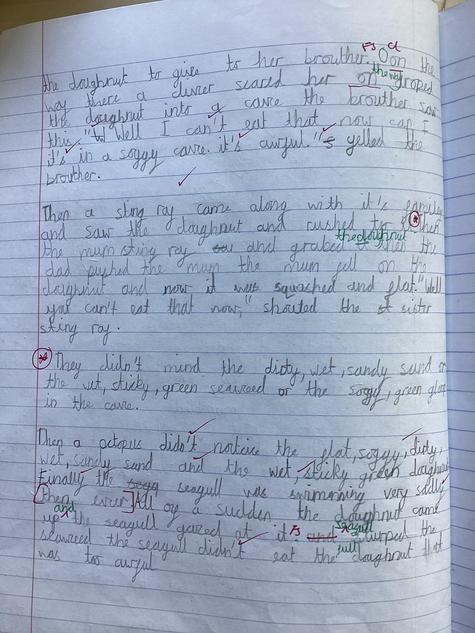 the doughnut to give to her brouther. Oon the
way there a diver scared her on the way groped
the doughnut into a cavre the brouther saw
this. "Well I can't eat that now can I
it's in a soggy cavre. it's awful." yelled the
brouther.
Then a sting ray came along with it's
and saw the doughnut and rushed to
the mum sting ray and grabed the doughnut the
dad pushed the mum the mum fell on the
doughnut and now it was squached and flat. "Well
you can't eat that now," shouted the sister
sting ray.
They didn't mind the dirty, wet, sandy sand or
the wet, sticky, green seaweed or the soggy, green
in the cavre.
Then a octopus didn't notice the flat, soggy, dirty,
wet, sandy sand and the wet, sticky, green doughnut
Finally the seagull was swimming very sadly
All of a sudden the doughnut came
up and the seagull gazed at it seagull
seaweed the seagull didn't eat the doughnut that
was too awful